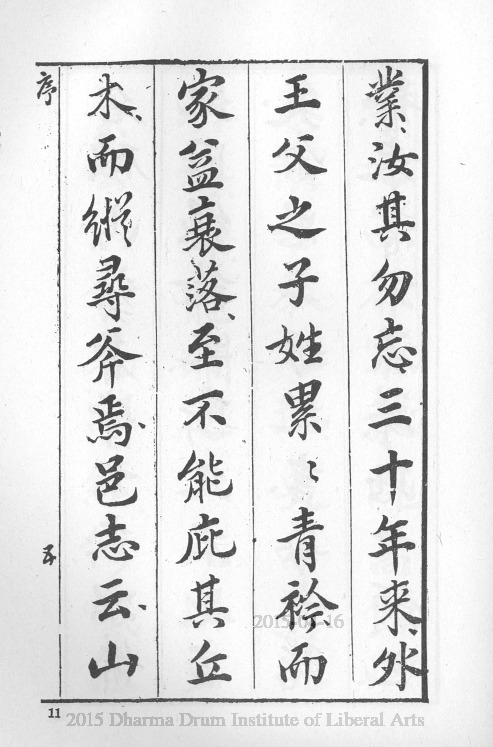 業、汝其勿忘、三十年来、外
王父之子姓累〻青衿而
家益衰落、至不能庇其丘
木、而縱尋斧焉、邑志云、山
序
五
11
2015-01-16
2015 Dharma Drum Institute of Liberal Arts